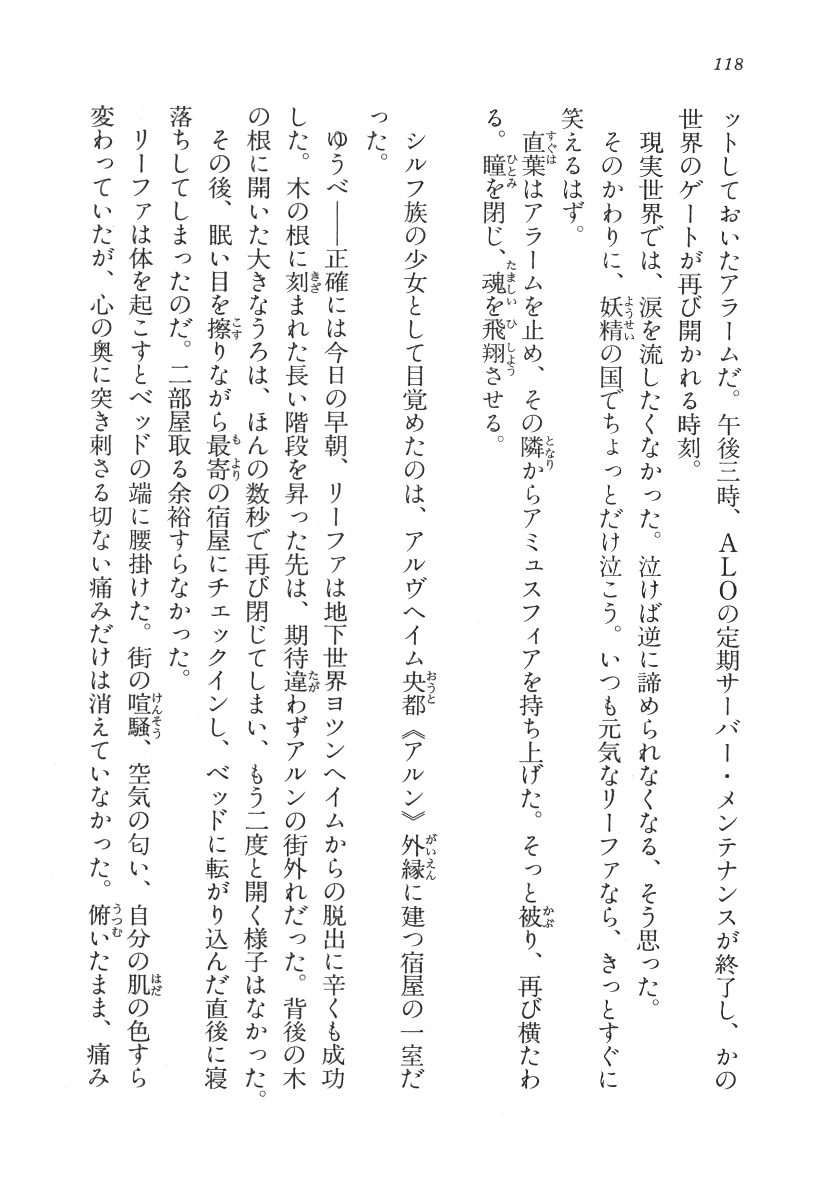 118
ットしておいたアラームだ。午後三時、ALOの定期サーバー・メンテナンスが終了し、かの
世界のゲートが再び開かれる時刻。
現実世界では、涙を流したくなかった。泣けば逆に諦められなくなる、そう思った。
そのかわりに、妖精の国でちょっとだけ泣こう。いつも元気なリーファなら、きっとすぐに
笑えるはず。
直葉はアラームを止め、その隣からアミュスフィアを持ち上げた。そっと被り、再び横たわ
る。瞳を閉じ、魂を飛翔させる。
シルフ族の少女として目覚めたのは、アルヴヘイム央都《アルン》外縁に建つ宿屋の一室だ
った。
ゆうべ――正確には今日の早朝、リーファは地下世界ヨツンヘイムからの脱出に辛くも成功
した。木の根に刻まれた長い階段を昇った先は、期待違わずアルンの街外れだった。背後の木
の根に開いた大きなうろは、ほんの数秒で再び閉じてしまい、もう二度と開く様子はなかった。
その後、眠い目を擦りながら最寄の宿屋にチェックインし、ベッドに転がり込んだ直後に寝
落ちしてしまったのだ。二部屋取る余裕すらなかった。
リーファは体を起こすとベッドの端に腰掛けた。街の喧騒、空気の匂い、自分の肌の色すら
変わっていたが、心の奥に突き刺さる切ない痛みだけは消えていなかった。俯いたまま、痛み